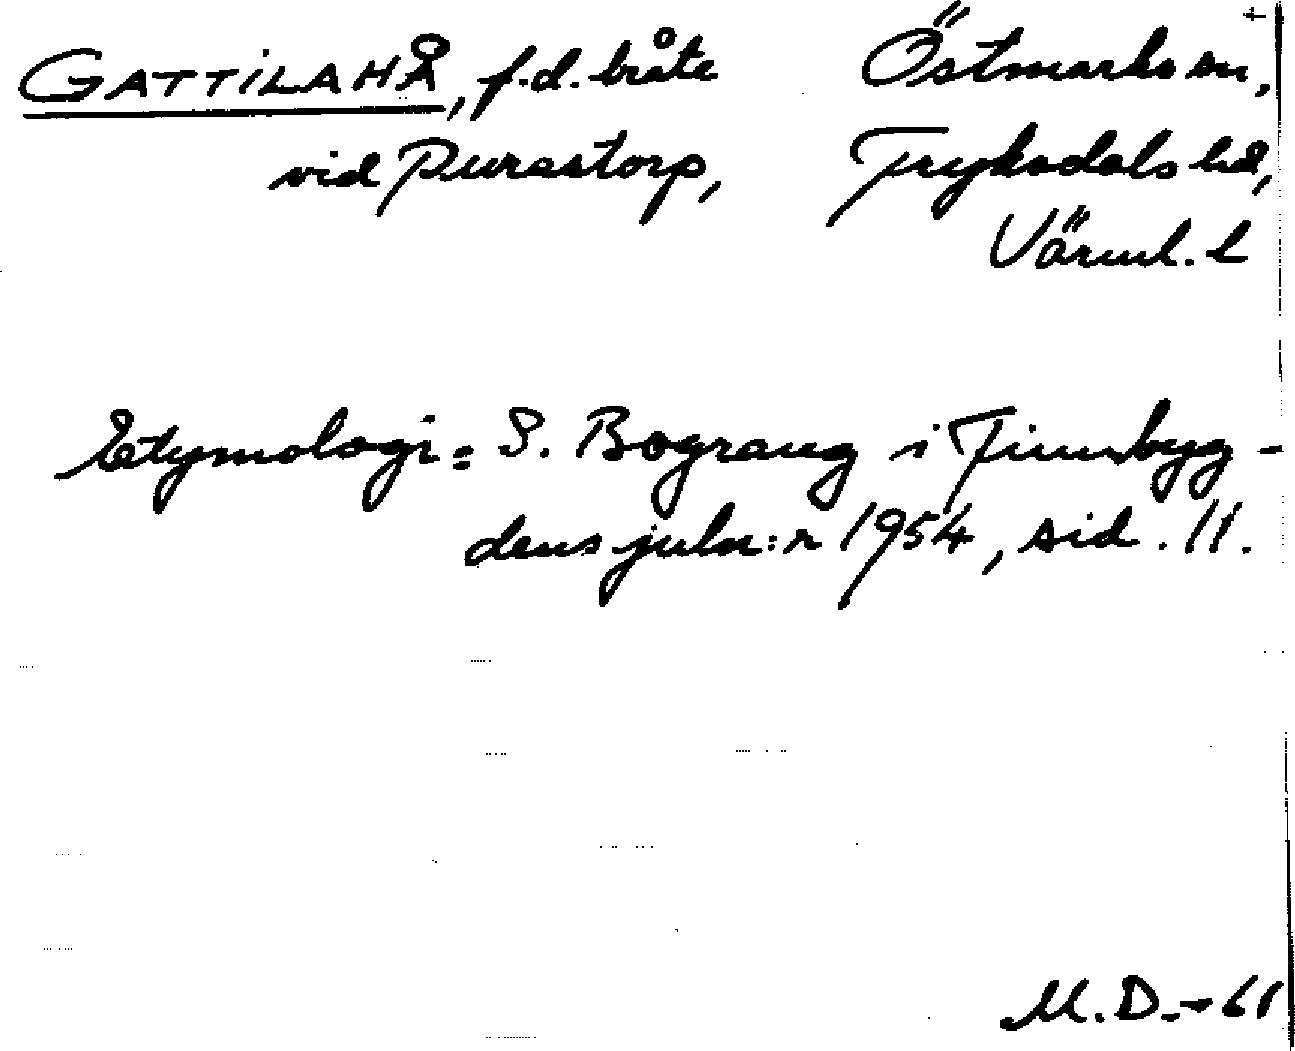 GATTILAHÅ, f.d. bråte Östmarks sn,
vid Purastorp, Fryksdals hd,
Värml. l
Etymologi: S. Bograng i Finnbyg-
dens juln:r 1954, sid. 11.
M.D. -61